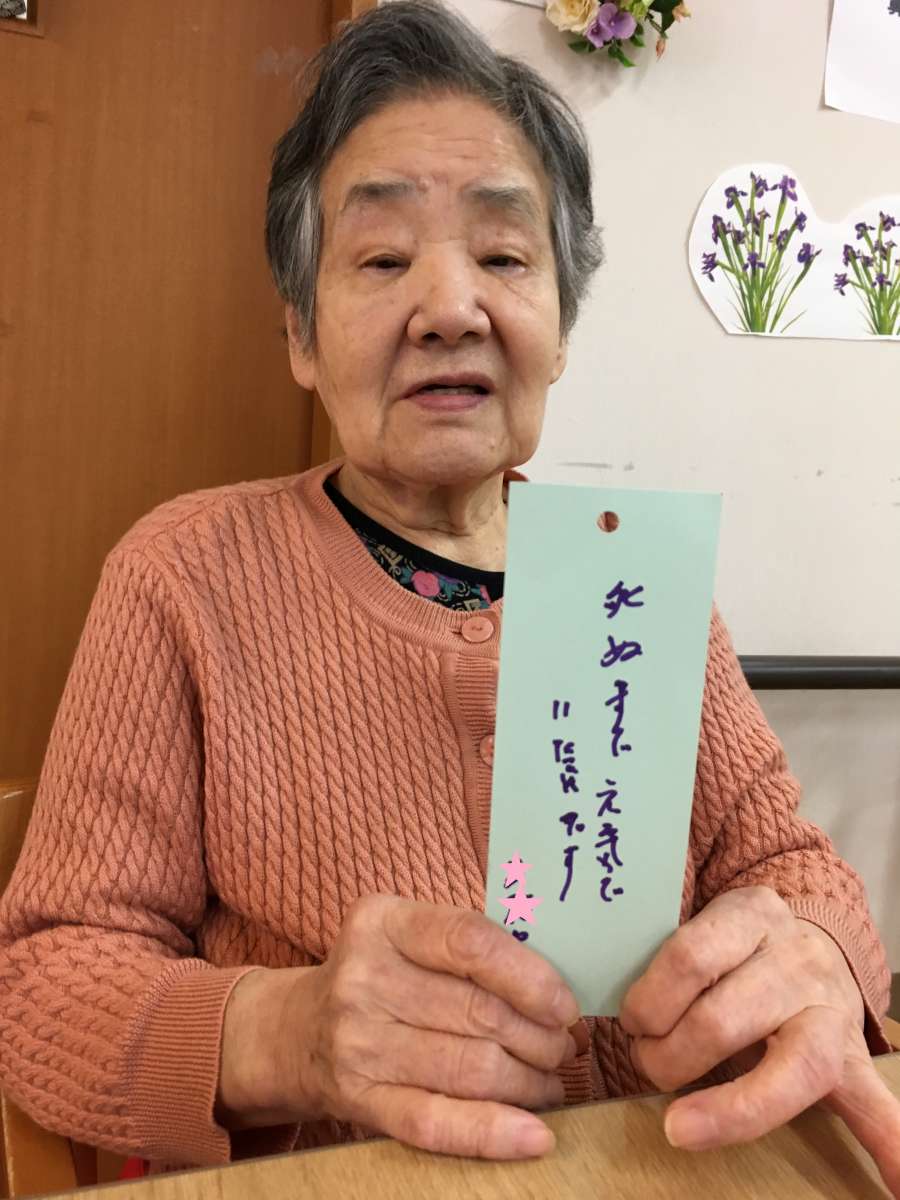 死ぬまで元気で
いたいです